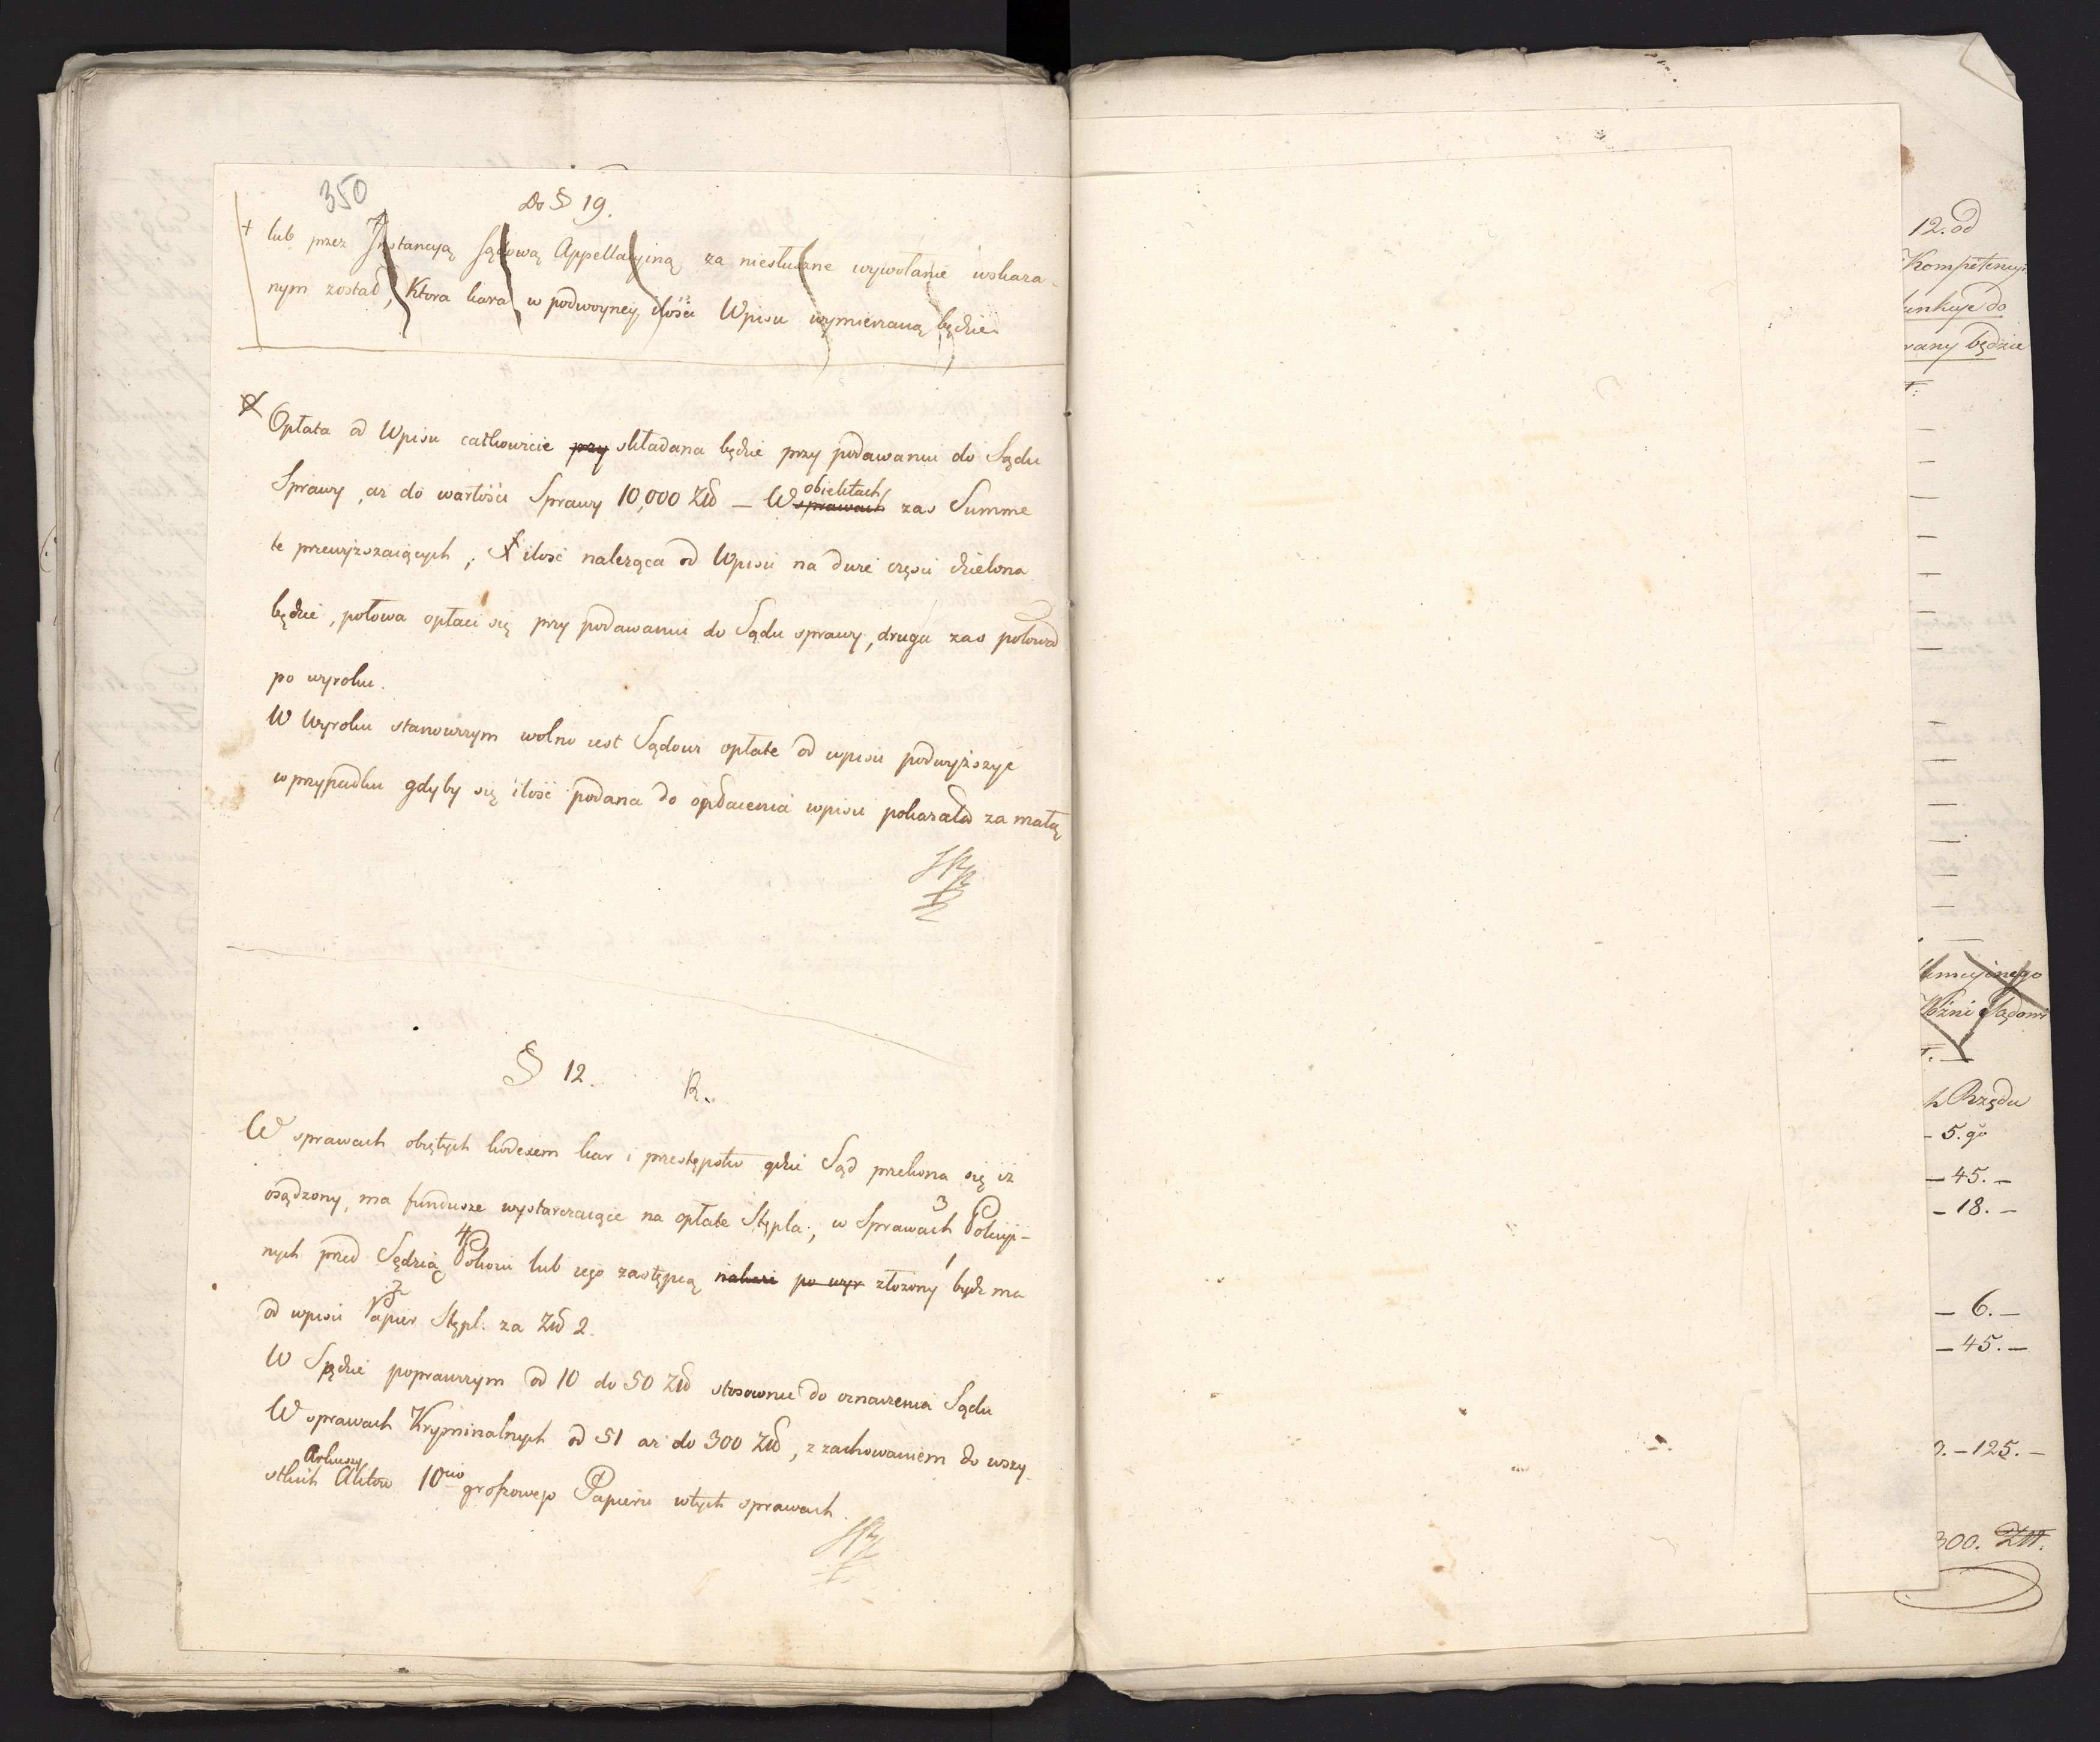 350
Do § 19.
+ lub przez Instancyą Sądową Appellacyiną za niesłuszne wywołanie wskaza-
nym został, Ktora kara w podwoyney ilości Wpisu wymierzaną będzie.
Opłata od Wpisu całkowicie przy składana będzie przy podawaniu do Sądu
Sprawy, aż do wartości Sprawy 10,000 Zło — W
obiektach
sprawach zas Summe
te przewyższaiących, ilość należąca od Wpisu na dwie części dzielona
będzie, połowa opłaci się przy podawaniu do Sądu sprawy, druga zas połowa
po wyroku.
W Wyroku stanowczym wolno iest Sądowi opłate od wpisu podwyższyć
w przypadku gdyby się ilość podana do opłacenia wpisu pokazała za małą
§ 12.
R.
W sprawach obiętych kodexem kar i przestępstw gdzie Sąd przekona się iż
osądzony, ma fundusze wystarczaiące na opłate Stępla, w Sprawach 3 Policyi-
nych przed Sędzią 4 Pokoiu lub iego zastępcą po wyr złożony 1 bydź ma
od wpisu 2 Papier Stępl. za Zło 2.
W Sądzie poprawczym od 10 do 50 Zło stosownie do oznaczenia Sądu
W sprawach Kryminalnych od 51 aż do 300 Zło, z zachowaniem do wszy-
Arkuszy
stkich Aktow 10cio groszowego Papieru w tych sprawach.
12. od
Kompetencyi
unkuje do
rany będzie
Woźni Sądowi
h Rzędu
- 5. go
- 45. -
- 18. -
- 6. -
- 45. -
0. - 125. -
300. Złł.